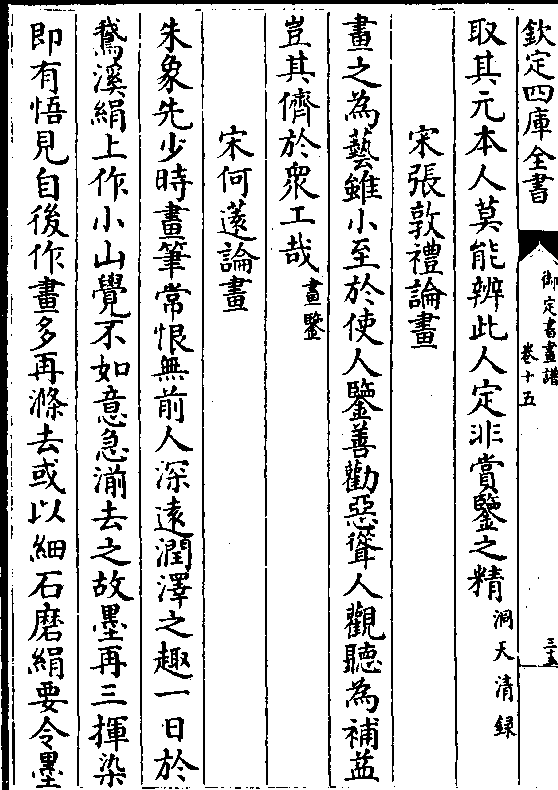 欽定四庫全書
御定書畫譜
卷十五
三五
取其元本人莫能辨此人定非賞鑒之精洞天清録
宋張敦禮論畫
畫之為藝雖小至於使人鑒善勸惡聳人觀聽為補益
豈其儕於衆工哉畫鑒
宋何薳論畫
朱象先少時畫筆常恨無前人深遠潤澤之趣一日於
鵞溪絹上作小山覺不如意急湔去之故墨再三揮染
即有悟見自後作畫多再滌去或以細石磨絹要令墨